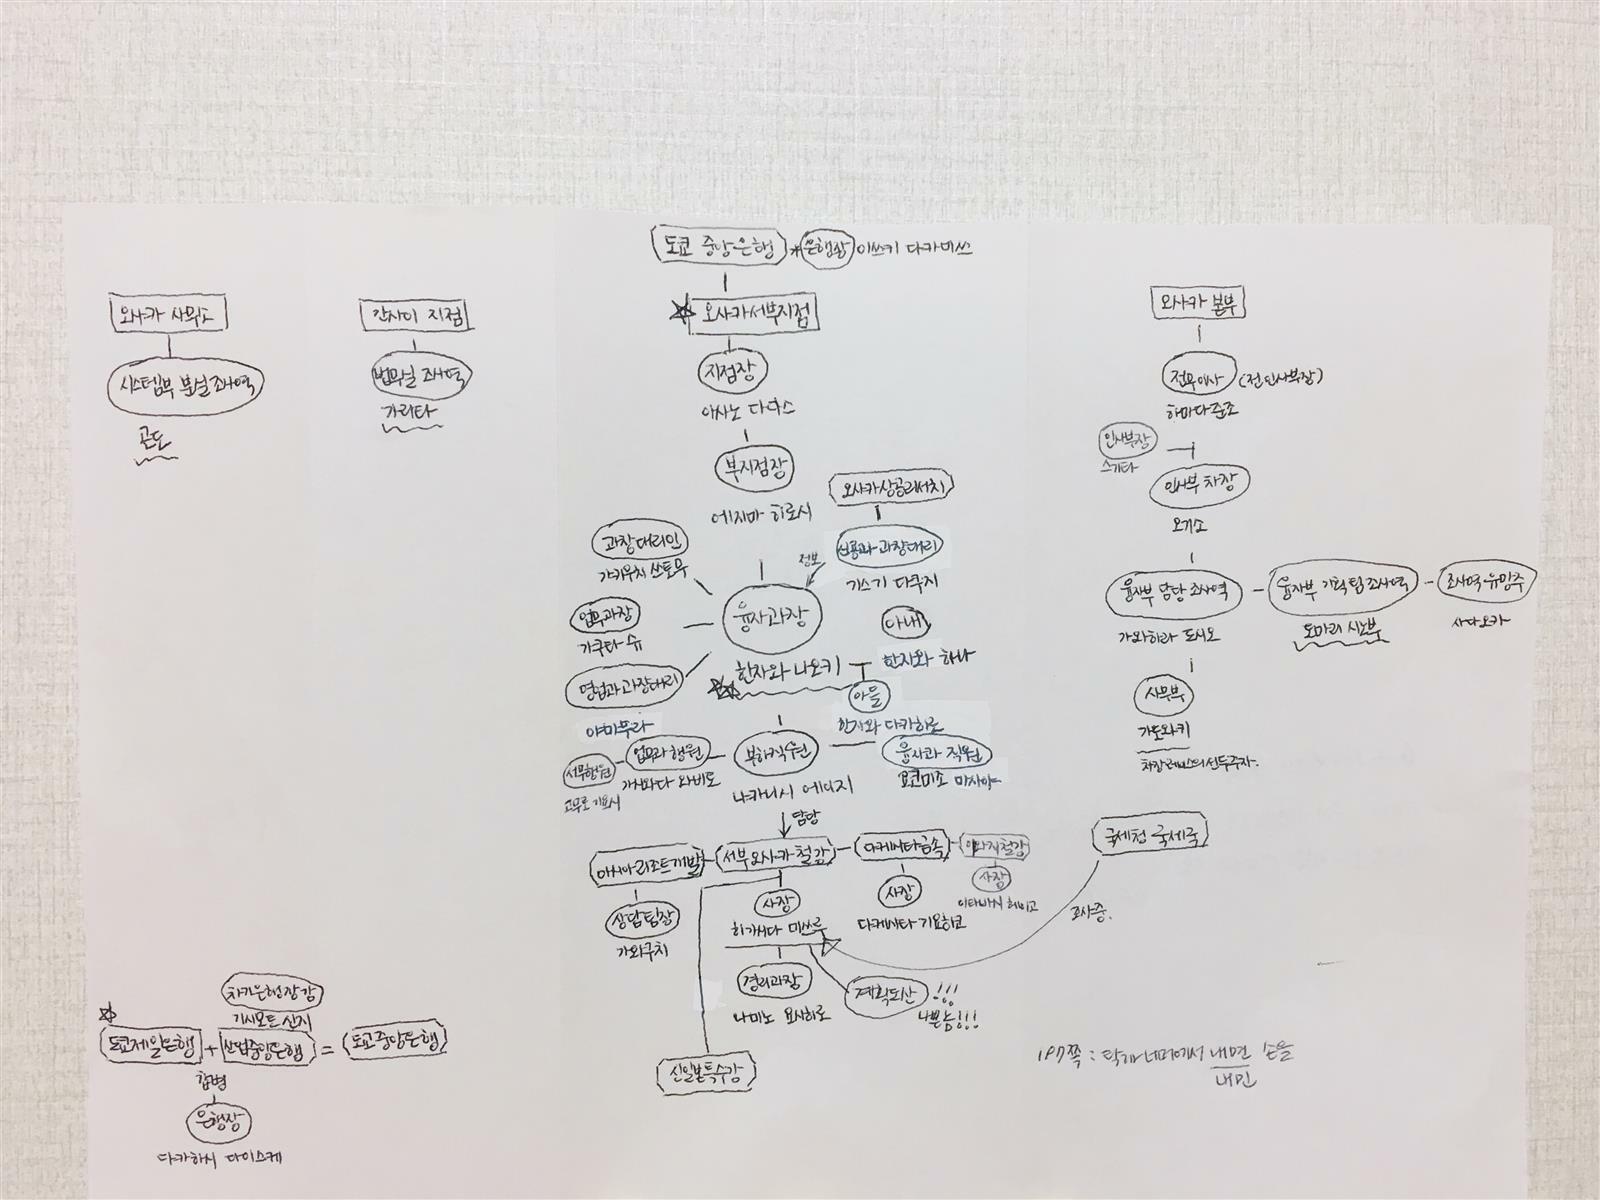 도쿄 중앙은행 * 은행장 이쓰키 다카미쓰
오사카 사무소
시스템부 분실 조사역
곤도
간사이 지점
법무실 조사역
가리타
오사카 서부지점
지점장
아사노 다다스
부지점장
에지마 히로시
오사카상공리서치
신용과 과장대리
기스기 다쿠지
정보
과장 대리인
가키우치 쓰토무
업무과장
가쿠타 슈
영업과 과장대리
야마무라
융자과장
한자와 나오키
아내
한자와 하나
아들
한자와 다카히로
서무행원
고무로 기요시
업무과 행원
부하직원
나카니시 에이지
융자과 직원
요코미조 마사야
담당
아시아 리조트개발
상담팀장
가와구치
서부 오사카 철강
사장
히가시다 미쓰루
경리과장
나미노 요시히로
계획도산 !!!
나쁜놈!!!
신일본특수강
다케시타금속
사장
다케시타 기요히코
아와지철강
사장
이타바시 헤이고
국세청 국세국
조사중.
오사카 본부
전무이사 (전 인사부장)
하마다 준조
인사부장
스기타
인사부 차장
오기소
융자부 담당 조사역
가와하라 도시오
융자부 기획팀 조사역
도마리 시노부
조사역·유망주
사다오카
사무부
가도와키
차장 레이스의 선두주자.
차기은행장감
기시모토 신지
도쿄제일은행 + 산업중앙은행 = 도쿄중앙은행
합병
은행장
다카하시 다이스케
197쪽 : 탁자 너머에서 내면 손을
내민